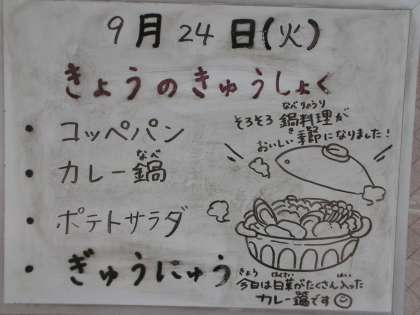 9月24日(火)
きょうのきゅうしょく
・コッペパン
・カレー鍋
なべ
・ポテトサラダ
・ぎゅうにゅう
なべりょうり
そろそろ鍋料理が
き
おいしい季節になりました!
きょう はくさい はい
今日は白菜がたくさん入った
カレー鍋です